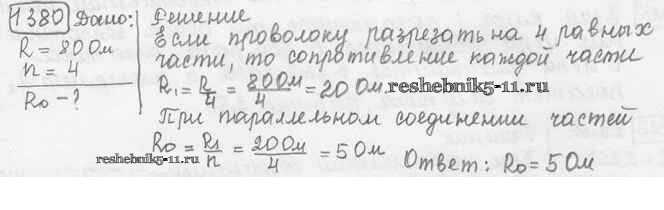 1380 Дано:
R = 80 Ом
n = 4
R₀ - ?
Решение
Если проволоку разрезать на 4 равных
части, то сопротивление каждой части
R₁ = R/4 = 80 Ом/4 = 20 Ом. reshebnik5-11.ru
При параллельном соединении частей
R₀ = R₁/n = 20 Ом/4 = 5 Ом
reshebnik5-11.ru
Ответ: R₀ = 5 Ом